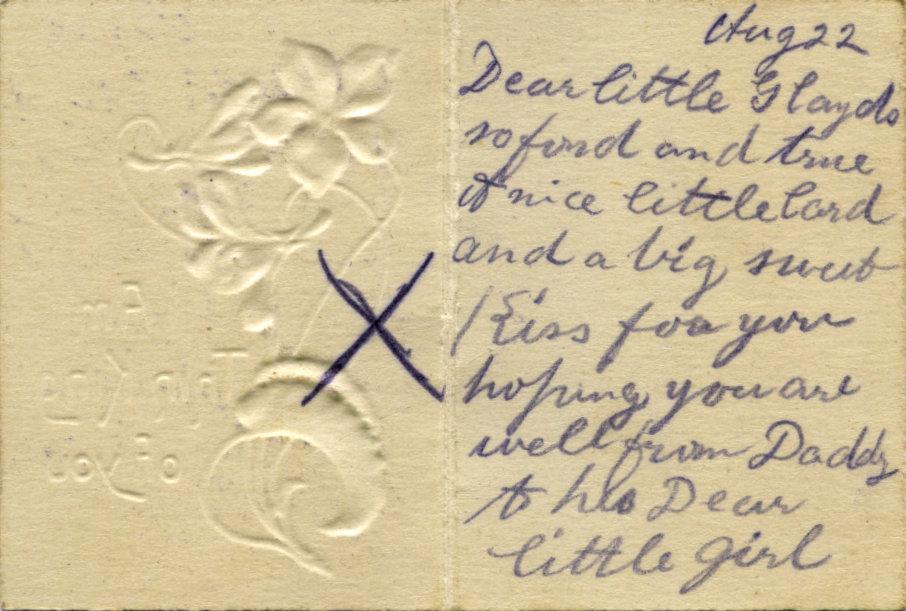 Am
Thinking
of you
Aug 22
Dear little Glayds
so fond and true
A nice little Card
and a big sweet
Kiss for you
hoping you are
well from Daddy
to his Dear
little girl
X